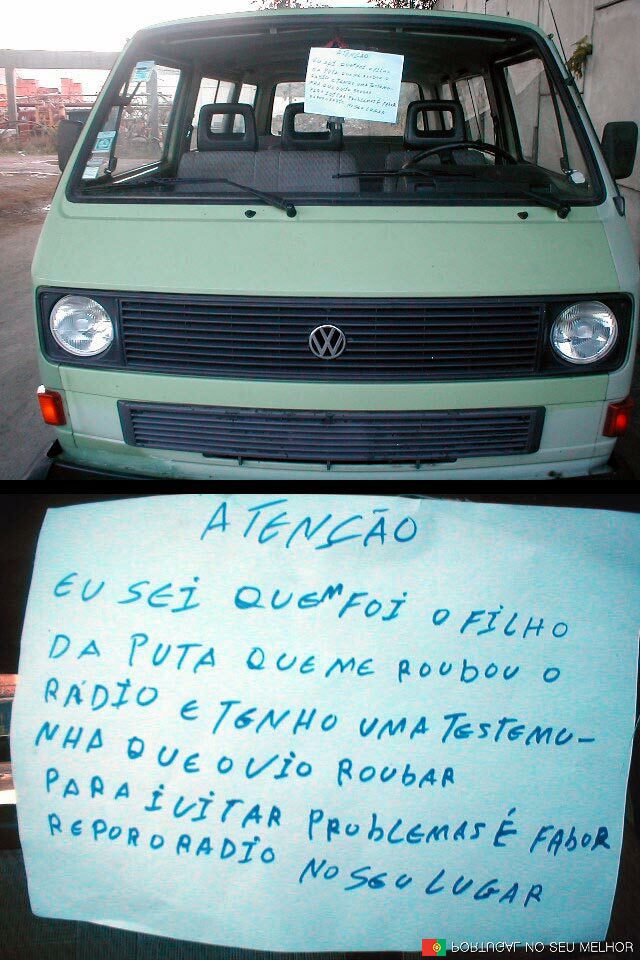 ATENÇÃO
EU SEI QUEM FOI O FILHO
DA PUTA QUE ME ROUBOU O
RÁDIO E TENHO UMA TESTEMU-
NHA QUE O VIO ROUBAR
PARA IVITAR PROBLEMAS É FABOR
REPOR O RADIO NO SEU LUGAR
PORTUGAL NO SEU MELHOR